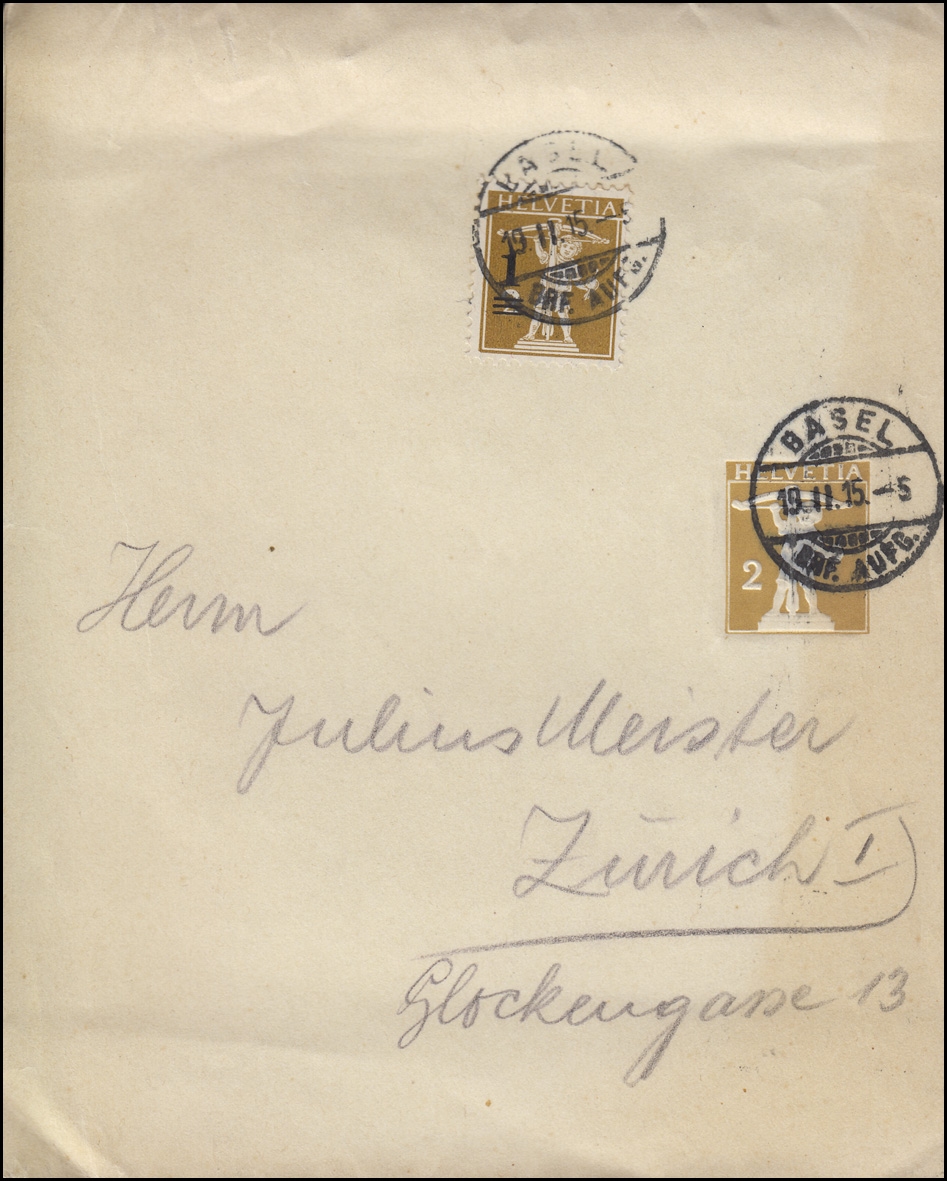 BASEL
HELVETIA
19.II.15.–5
1
BRF. AUFG.
BASEL
HELVETIA
19.II.15.–5
2
BRF. AUFG.
Herrn
Julius Meister
Zürich I
Glockengasse 13